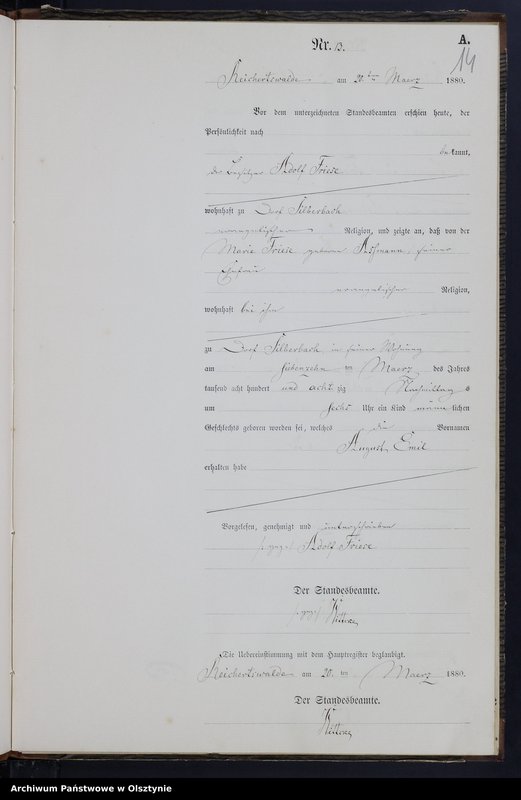 A.
Nr. 13.
14
Reichertswalde am 20. ten Maerz 1880.
Vor dem unterzeichneten Standesbeamten erschien heute, der
Persönlichkeit nach
bekannt,
der Besitzer Adolf Friese
wohnhaft zu Dorf Silberbach
evangelischer Religion, und zeigte an, daß von der
Marie Friese geborne Aßmann, seiner
Ehefrau
evangelischer Religion,
wohnhaft bei ihm
zu Dorf Silberbach in seiner Wohnung
am siebenzehn ten Maerz des Jahres
tausend acht hundert und acht zig Nachmittag s
um sechs Uhr ein Kind männ lichen
Geschlechts geboren worden sei, welches die Vornamen
August Emil
erhalten habe
Vorgelesen, genehmigt und unterschrieben
gez. Adolf Friese
Der Standesbeamte.
gez.
Die Uebereinstimmung mit dem Hauptregister beglaubigt.
Reichertswalde am 20. ten Maerz 1880.
Der Standesbeamte.
Archiwum Państwowe w Olsztynie